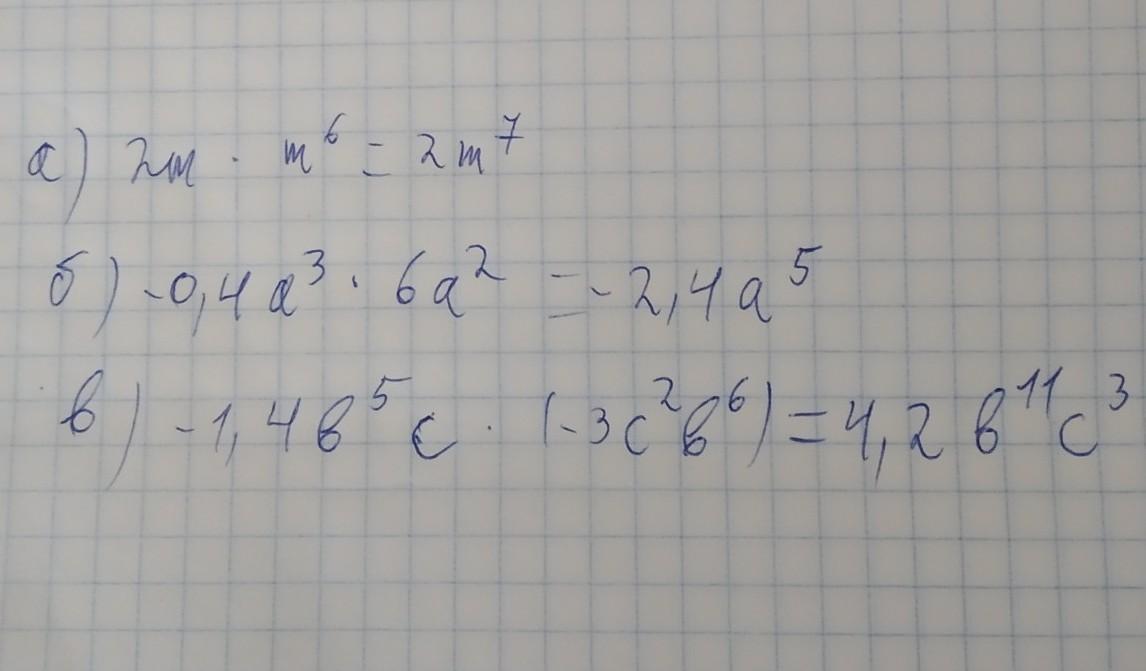 а) 2m · m⁶ = 2m⁷
б) -0,4a³ · 6a² = -2,4a⁵
в) -1,4b⁵c · (-3c²b⁶) = 4,2b¹¹c³